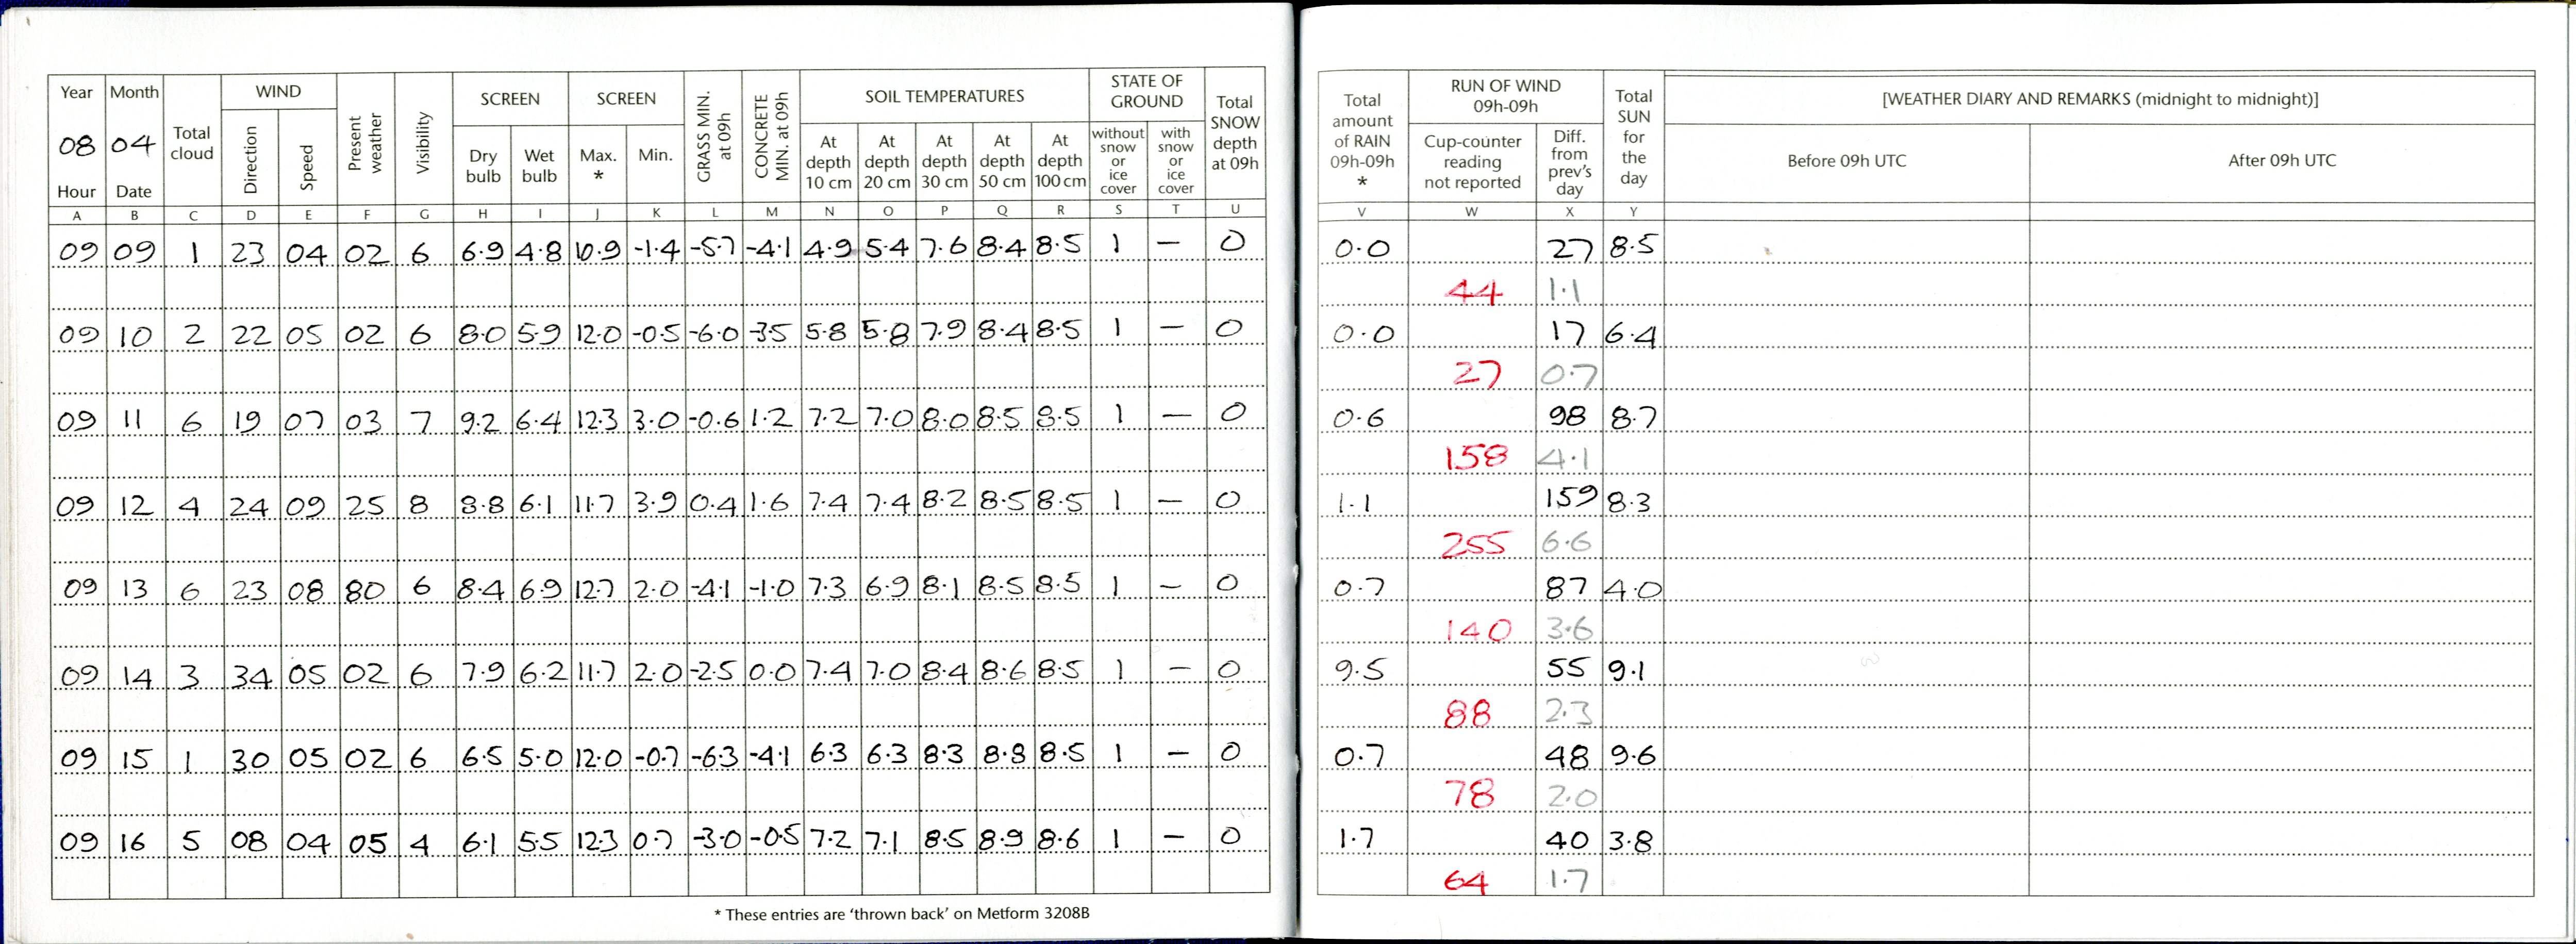 Year Month Total cloud WIND Present weather Visibility SCREEN SCREEN GRASS MIN. at 09h CONCRETE MIN. at 09h SOIL TEMPERATURES STATE OF GROUND Total SNOW depth at 09h Total amount of RAIN 09h-09h * RUN OF WIND 09h-09h Total SUN for the day [WEATHER DIARY AND REMARKS (midnight to midnight)]
08 04 Direction Speed Dry bulb Wet bulb Max. * Min. At depth 10 cm At depth 20 cm At depth 30 cm At depth 50 cm At depth 100 cm without snow or ice cover with snow or ice cover Cup-counter reading not reported Diff. from prev's day Before 09h UTC After 09h UTC
Hour Date
A B C D E F G H I J K L M N O P Q R S T U V W X Y
09 09 1 23 04 02 6 6.9 4.8 10.9 -1.4 -5.7 -4.1 4.9 5.4 7.6 8.4 8.5 1 — 0 0.0 27 8.5
44 1.1
09 10 2 22 05 02 6 8.0 5.9 12.0 -0.5 -6.0 -3.5 5.8 5.8 7.9 8.4 8.5 1 — 0 0.0 17 6.4
27 0.7
09 11 6 19 07 03 7 9.2 6.4 12.3 3.0 -0.6 1.2 7.2 7.0 8.0 8.5 8.5 1 — 0 0.6 98 8.7
158 4.1
09 12 4 24 09 25 8 8.8 6.1 11.7 3.9 0.4 1.6 7.4 7.4 8.2 8.5 8.5 1 — 0 1.1 159 8.3
255 6.6
09 13 6 23 08 80 6 8.4 6.9 12.7 2.0 -4.1 -1.0 7.3 6.9 8.1 8.5 8.5 1 — 0 0.7 87 4.0
140 3.6
09 14 3 34 05 02 6 7.9 6.2 11.7 2.0 -2.5 0.0 7.4 7.0 8.4 8.6 8.5 1 — 0 9.5 55 9.1
88 2.3
09 15 1 30 05 02 6 6.5 5.0 12.0 -0.7 -6.3 -4.1 6.3 6.3 8.3 8.8 8.5 1 — 0 0.7 48 9.6
78 2.0
09 16 5 08 04 05 4 6.1 5.5 12.3 0.7 -3.0 -0.5 7.2 7.1 8.5 8.9 8.6 1 — 0 1.7 40 3.8
64 1.7
* These entries are 'thrown back' on Metform 3208B